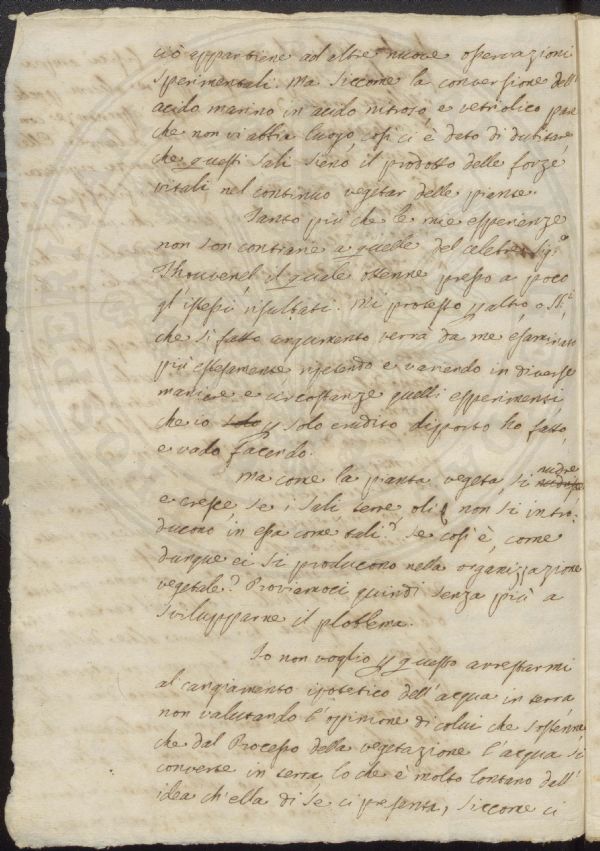 ciò appartiene ad altre nuove osservazioni
sperimentali. Ma siccome la conversione dell'
acido marino in acido nitroso, e vetriolico pare
che non vi abbia luogo, così ci è dato di dubitare
che questi sali sieno il prodotto delle forze
vitali nel continuo vegetar delle piante.
Tanto più che le mie esperienze
non son contrarie a quelle del celebre Sig.r
Thouvenel, il quale ottenne presso a poco
gl'istessi risultati. Mi protesto altro
che sì fatto argomento verrà da me esaminato
più estesamente ripetendo e variando in diverse
maniere e circostanze quelli esperimenti
che io solo erudito diporto ho fatto,
e vado facendo.
Ma come la pianta vegeta, si nudre
e cresce se i sali terre oli non si intro-
ducono in essa come tali? Se così è, come
dunque ci si producono nella organizzazione
vegetale? Proviamoci quindi senza più a
svilupparne il ploblema.
Io non voglio questo arrestarmi
al cangiamento ipotetico dell'acqua in terra
non valutando l'oppinione di colui che sostenne
che dal Processo della vegetazione l'acqua si
converte in terra, lo che è molto lontano dall'
idea ch'ella di se ci presenta, siccome ci